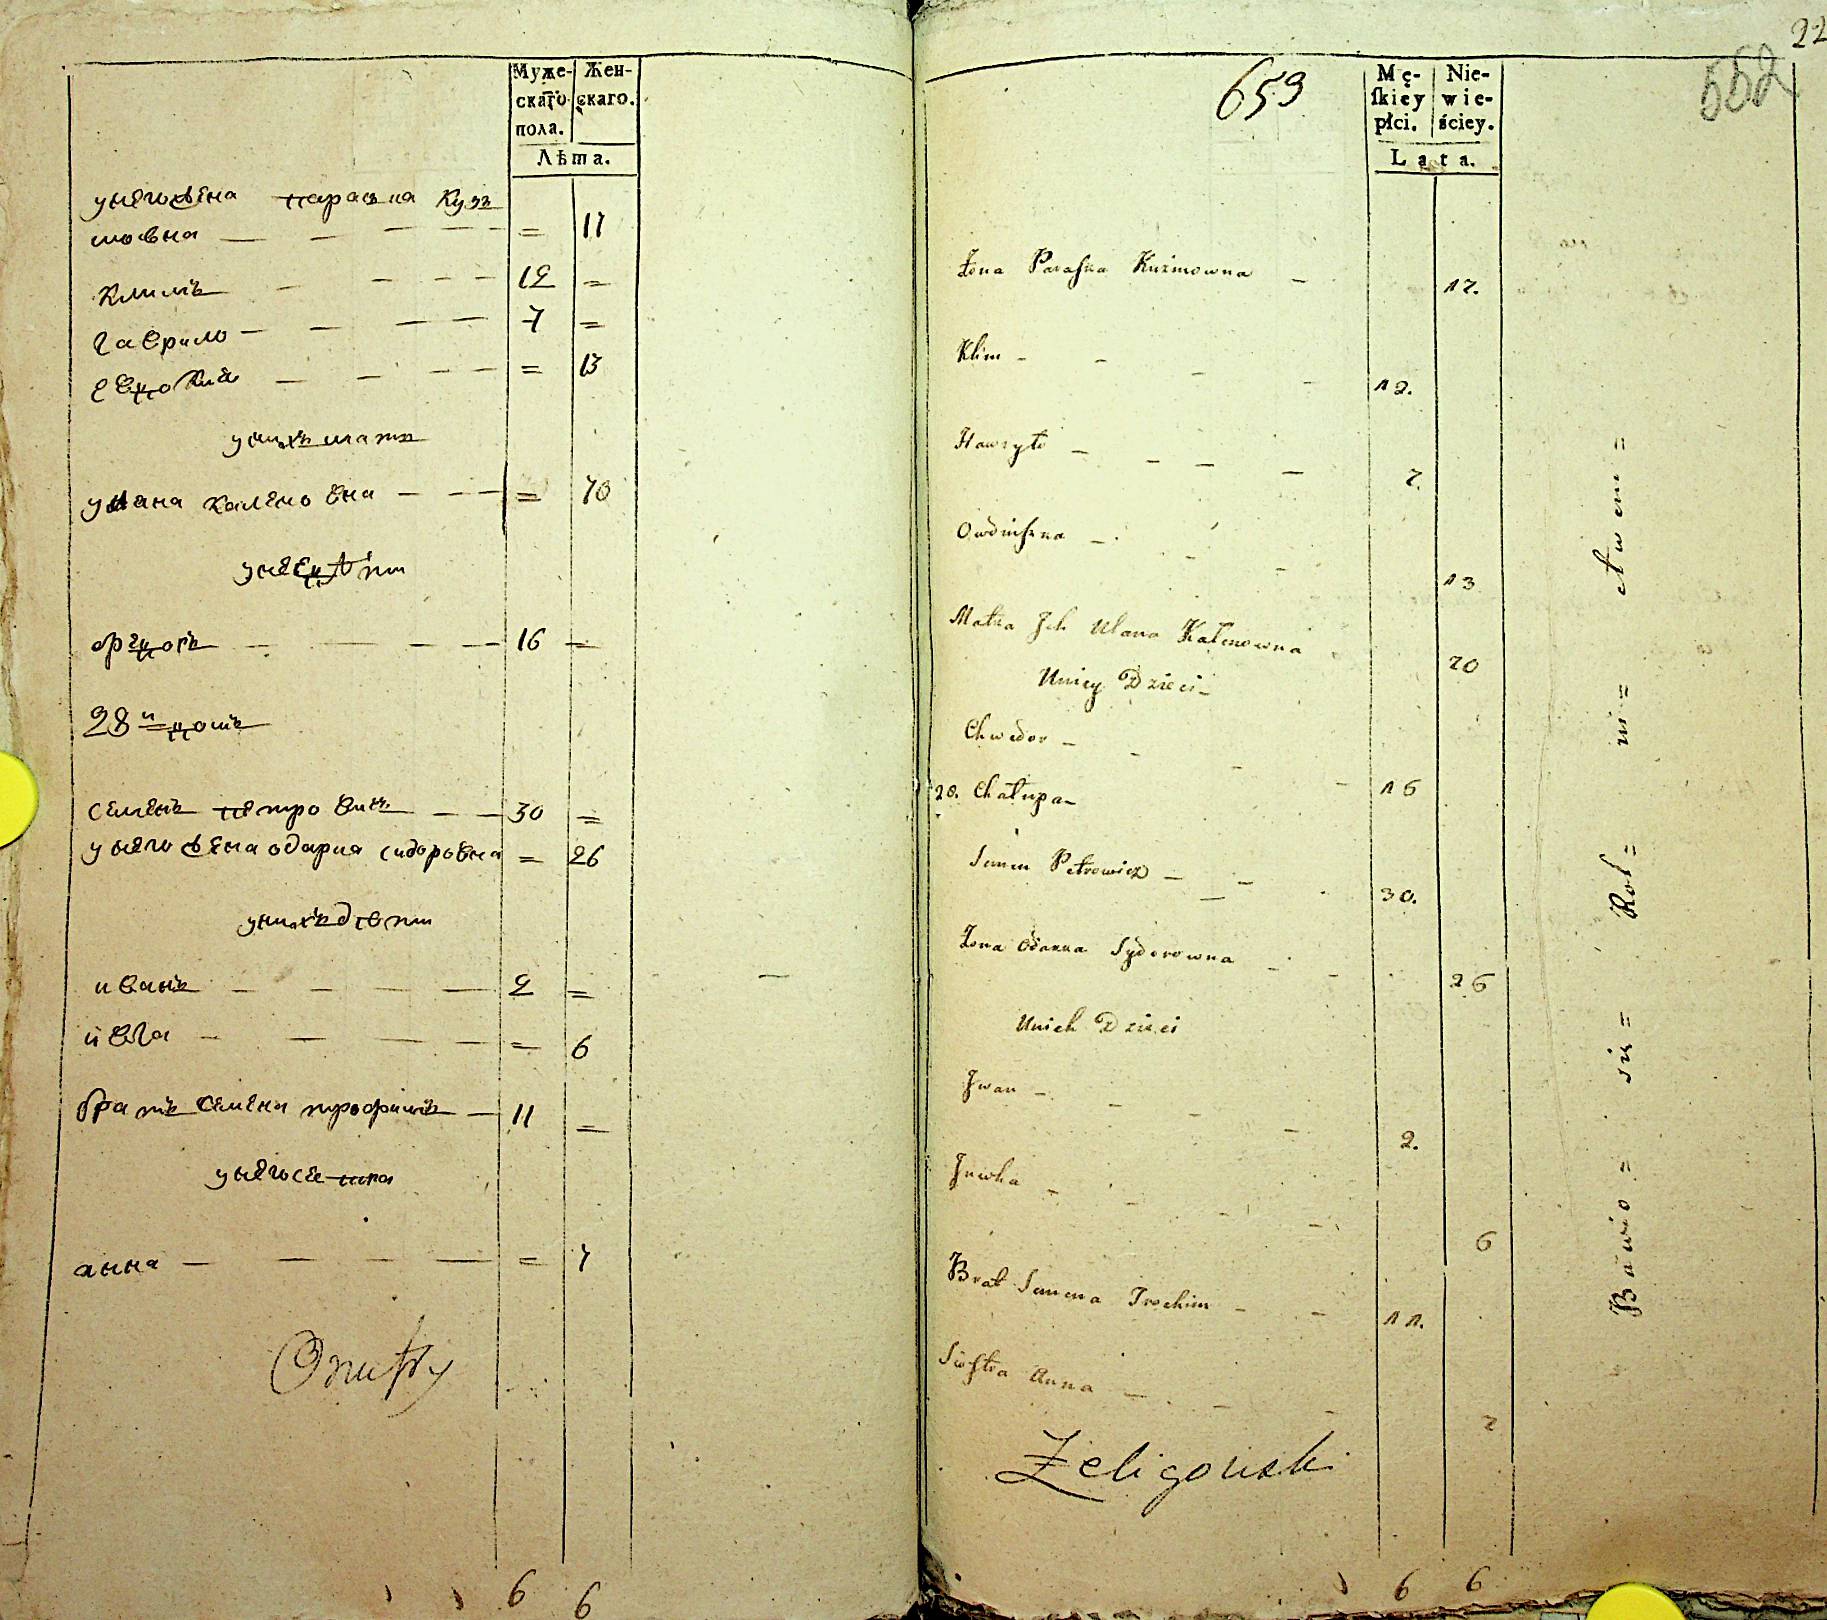 Муже-
скаго
пола.
Жен-
скаго.
Лѣта.
унего жена параска Кузь
мовна — — — — = 17
Климъ — — — 12 =
гаврило — — — — 7 =
евдокия — — — — = 13
унихъ мать
уляна калѣновна — — — = 70
унее дѣти
фѣдоръ — — — — 16 =
28й домъ
семенъ петровичъ — — 30 =
унего жена одария сидоровна = 26
унихъ дѣти
иванъ — — — — 2 =
ивга — — — — = 6
братъ семена трофимъ — 11 =
унего сестра
анна — — — — = 7
6 6
22
552
659
Mę-
ſkiey
płci.
Nie-
wie-
ściey.
Lata.
Żona Paraſka Kuzmowna — 17.
Klim — — — — 12.
Hawryło — — — — 7.
Owdiuſzka — — — 13
Matka Jch Ulana Kalenowna 70
Uniey Dzieci —
Chwedor — — — — 16
28. Chałupa —
Semen Petrowicz — — — 30.
Żona Odarka Sydorowna — — 26
Unich Dzieci
Jwan — — — — 2.
Jewka — — — — 6
Brat Semena Trochim — — 11.
Sioſtra Anna — — — 7
Żeligowski
6 6